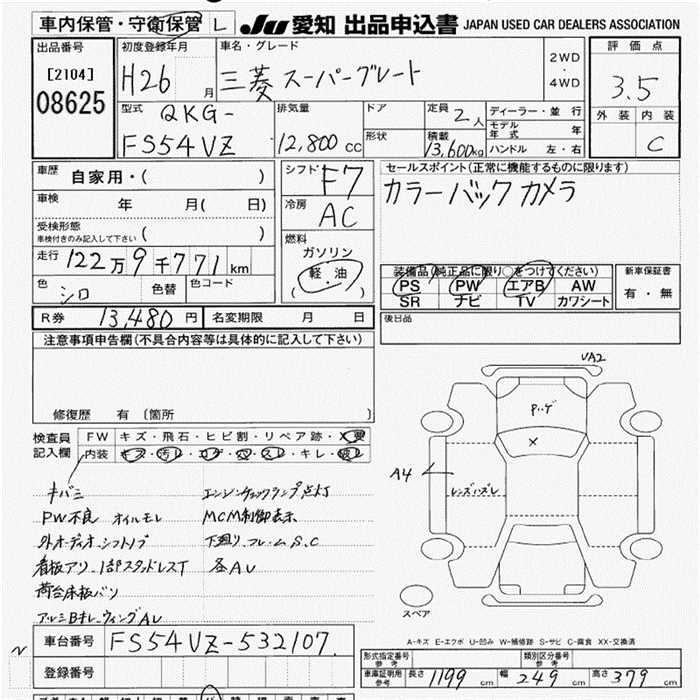 車内保管・守衛保管 L JU 愛知 出品申込書 JAPAN USED CAR DEALERS ASSOCIATION
出品番号 初度登録年月 車名・グレード 2WD・4WD 評価点
[2104] 08625 H26 月 三菱 スーパーグレート 3.5
型式 QKG- 排気量 ドア 定員 2人 ディーラー・並行 外装 内装
モデル年式 年
FS54VZ 12,800 cc 形状 積載 13,600kg ハンドル 左・右 C
車歴 自家用・( ) シフト F7 セールスポイント(正常に機能するものに限ります)
車検 年 月( 日) 冷房 AC カラーバックカメラ
受検形態 車検付きのみ記入して下さい ( )
燃料 ガソリン 軽・油 ( )
走行 122万9千771km 装備品(純正品に限り○をつけてください) 新車保証書
色 シロ 色替 色コード PS PW エアB AW 有・無
SR ナビ TV カワシート
R券 13,480円 名変期限 月 日 後日品
注意事項申告欄(不具合内容等は具体的に記入して下さい)
修復歴 有 〔箇所 〕
検査員記入欄 FW キズ・飛石・ヒビ割・リペア跡・X要
内装 キズ・汚レ・コゲ・穴・スレ・キレ・破レ
キバミ エンジンチェックランプ点灯
PW不良 オイルモレ MCM制御表示
外オーディオ シフトノブ 下廻り フレームS.C
看板アリ 1部スタッドレスT 各AU
荷台床板バツ
アルミBキレ ウィングAU
VA2
P.ゲ
×
A4
レンズハズレ
スペア
A-キズ E-エクボ U-凹み W-補修跡 S-サビ C-腐食 XX-交換済
N 車台番号 FS54VZ-532107
登録番号
形式指定番号 参考 類別区分番号 参考
車庫証明用 参考 長さ 1199cm 幅 249cm 高さ 379cm